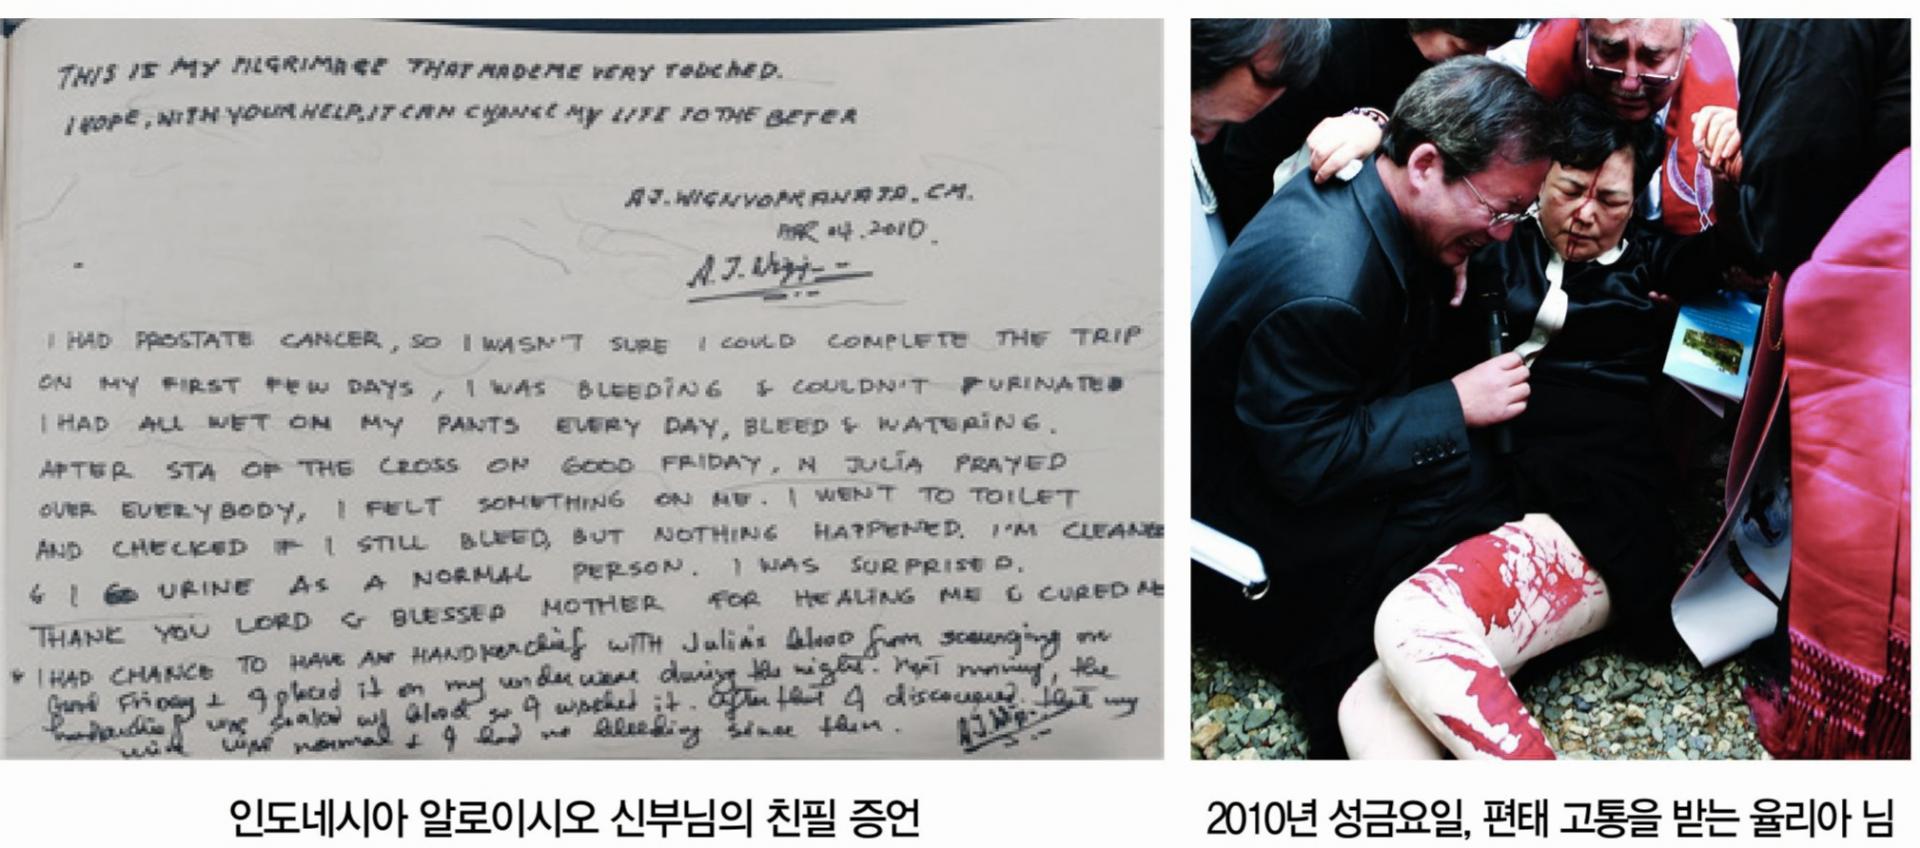 THIS IS MY PILGRIMAGE THAT MADE ME VERY TOUCHED.
I HOPE, WITH YOUR HELP, IT CAN CHANGE MY LIFE TO THE BETER
AJ. WIGNYOPRANATA. CM.
APR 04. 2010.
A.J. Wigy
I HAD PROSTATE CANCER, SO I WASN'T SURE I COULD COMPLETE THE TRIP
ON MY FIRST FEW DAYS, I WAS BLEEDING & COULDN'T URINATED
I HAD ALL WET ON MY PANTS EVERY DAY, BLEED & WATERING.
AFTER STA OF THE CROSS ON GOOD FRIDAY, N JULIA PRAYED
OVER EVERYBODY, I FELT SOMETHING ON ME. I WENT TO TOILET
AND CHECKED IF I STILL BLEED, BUT NOTHING HAPPENED. I'M CLEANED
& I URINE AS A NORMAL PERSON. I WAS SURPRISED.
THANK YOU LORD & BLESSED MOTHER FOR HEALING ME & CURED ME
* I HAD CHANCE TO HAVE AN HANDKERchief WITH Julia's blood from scourging on
Good Friday & I placed it on my underwear during the night. Next morning, the
handkerchief was soaked w/ blood so I washed it. After that I discovered that my
urine was normal & I had no bleeding since then.
인도네시아 알로이시오 신부님의 친필 증언
2010년 성금요일, 편태 고통을 받는 율리아 님